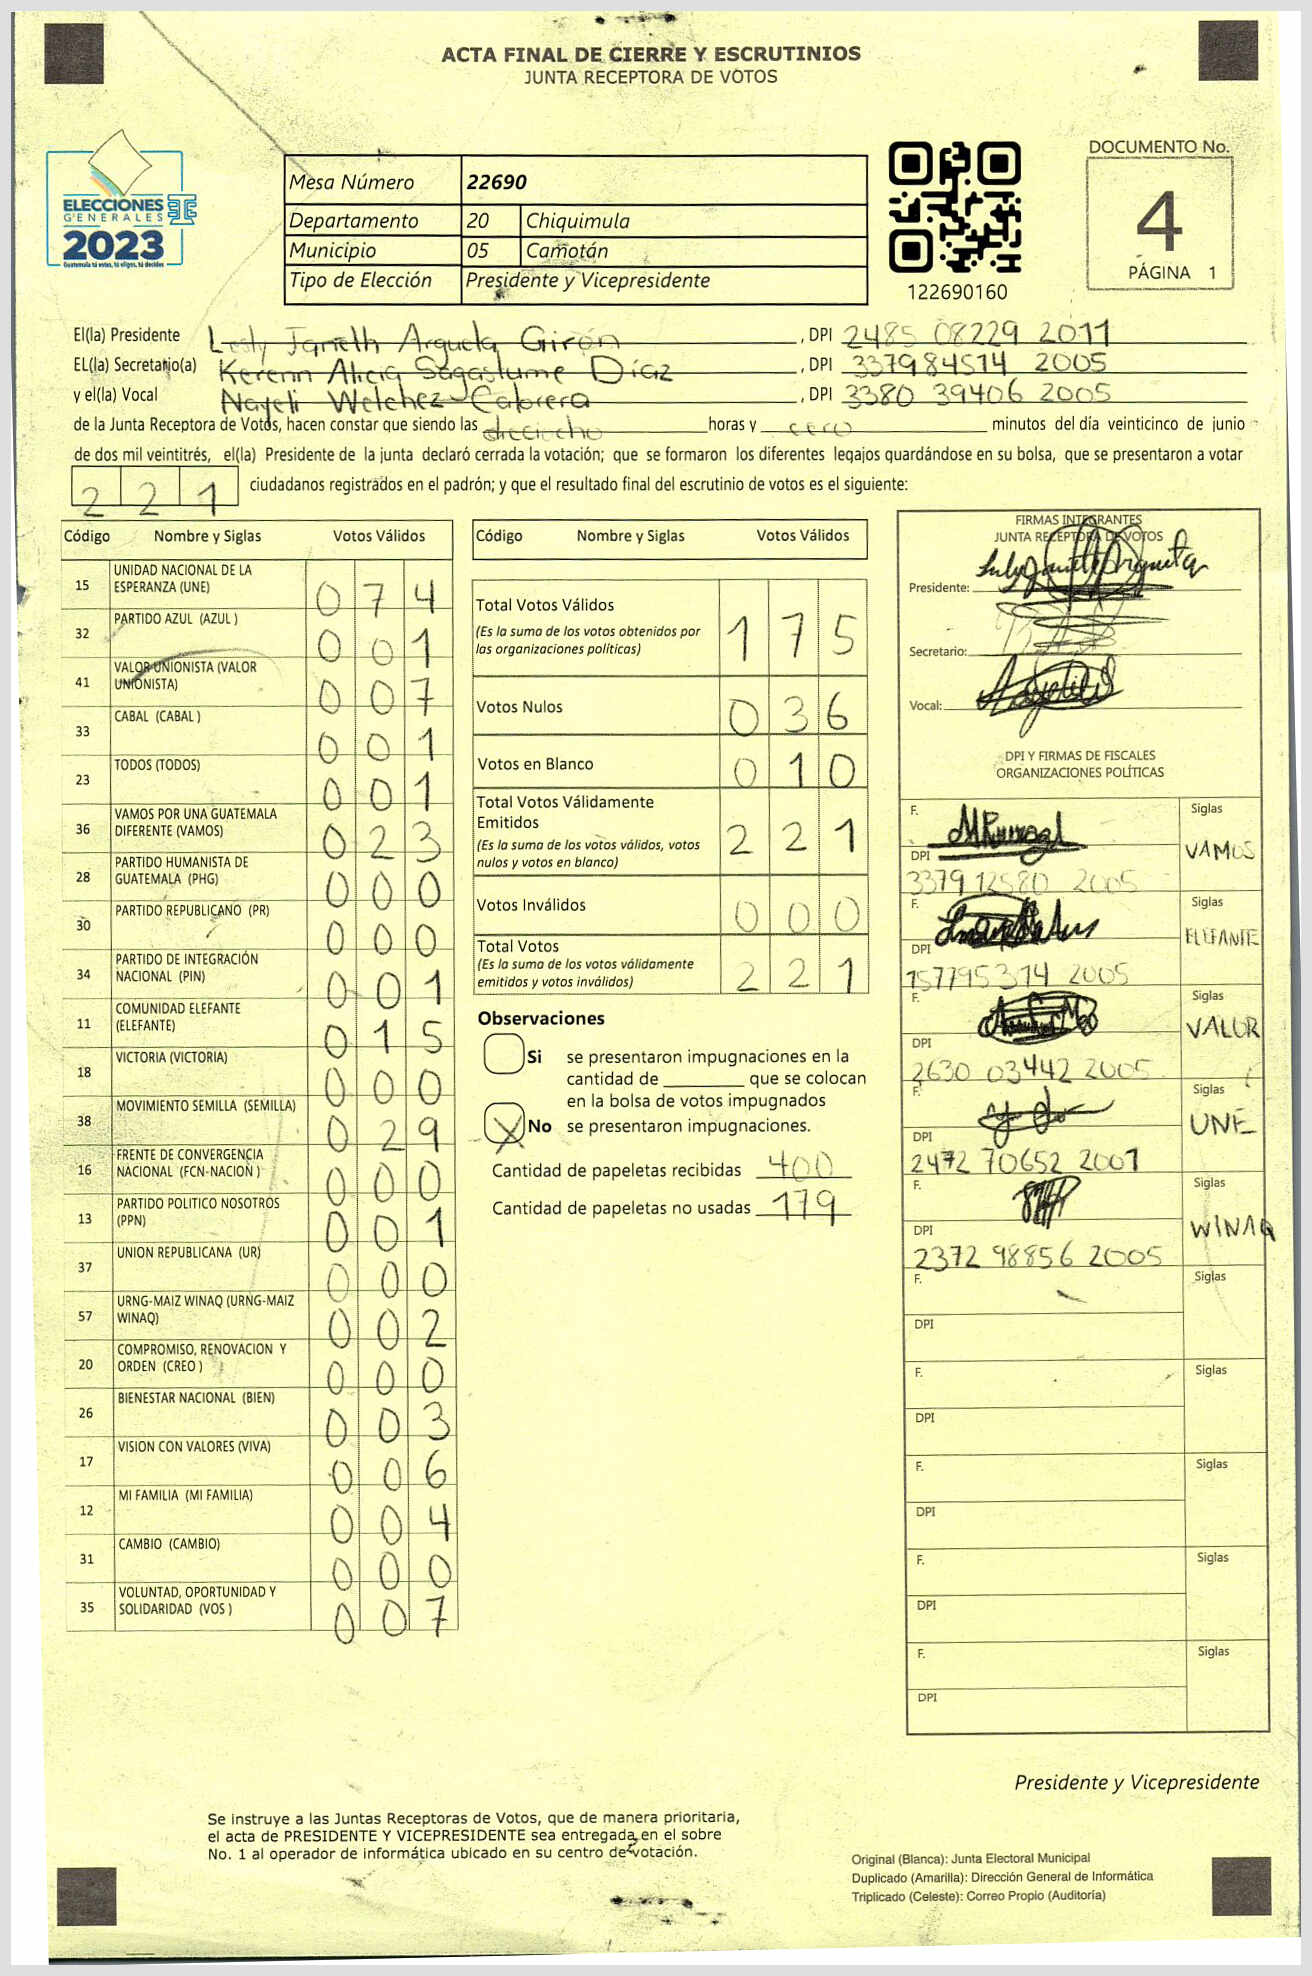 ACTA FINAL DE CIERRE Y ESCRUTINIOS
JUNTA RECEPTORA DE VOTOS
ELECCIONES
GENERALES
2023
Guatemala tú votas, tú eliges, tú decides
Mesa Número 22690
Departamento 20 Chiquimula
Municipio 05 Camotán
Tipo de Elección Presidente y Vicepresidente
122690160
DOCUMENTO No.
4
PÁGINA 1
El(la) Presidente Lesly Janeth Argueta Girón, DPI 2485 08229 2011
EL(la) Secretario(a) Kerenn Alicia Sagastume Díaz, DPI 337984514 2005
y el(la) Vocal Nayeli Welchez Cabrera, DPI 3380 39406 2005
de la Junta Receptora de Votos, hacen constar que siendo las dieciocho horas y cero minutos del día veinticinco de junio
de dos mil veintitrés, el(la) Presidente de la junta declaró cerrada la votación; que se formaron los diferentes legajos guardándose en su bolsa, que se presentaron a votar
221 ciudadanos registrados en el padrón; y que el resultado final del escrutinio de votos es el siguiente:
Código Nombre y Siglas Votos Válidos
15 UNIDAD NACIONAL DE LA ESPERANZA (UNE) 074
32 PARTIDO AZUL (AZUL ) 001
41 VALOR UNIONISTA (VALOR UNIONISTA) 007
33 CABAL (CABAL ) 001
23 TODOS (TODOS) 001
36 VAMOS POR UNA GUATEMALA DIFERENTE (VAMOS) 023
28 PARTIDO HUMANISTA DE GUATEMALA (PHG) 000
30 PARTIDO REPUBLICANO (PR) 000
34 PARTIDO DE INTEGRACIÓN NACIONAL (PIN) 001
11 COMUNIDAD ELEFANTE (ELEFANTE) 015
18 VICTORIA (VICTORIA) 000
38 MOVIMIENTO SEMILLA (SEMILLA) 029
16 FRENTE DE CONVERGENCIA NACIONAL (FCN-NACION ) 000
13 PARTIDO POLITICO NOSOTROS (PPN) 001
37 UNION REPUBLICANA (UR) 000
57 URNG-MAIZ WINAQ (URNG-MAIZ WINAQ) 002
20 COMPROMISO, RENOVACION Y ORDEN (CREO ) 000
26 BIENESTAR NACIONAL (BIEN) 003
17 VISION CON VALORES (VIVA) 006
12 MI FAMILIA (MI FAMILIA) 004
31 CAMBIO (CAMBIO) 000
35 VOLUNTAD, OPORTUNIDAD Y SOLIDARIDAD (VOS ) 007
Código Nombre y Siglas Votos Válidos
Total Votos Válidos 175
(Es la suma de los votos obtenidos por
las organizaciones políticas)
Votos Nulos 036
Votos en Blanco 010
Total Votos Válidamente
Emitidos 221
(Es la suma de los votos válidos, votos
nulos y votos en blanco)
Votos Inválidos 000
Total Votos 221
(Es la suma de los votos válidamente
emitidos y votos inválidos)
Observaciones
Si se presentaron impugnaciones en la
cantidad de ________ que se colocan
en la bolsa de votos impugnados
X No se presentaron impugnaciones.
Cantidad de papeletas recibidas 400
Cantidad de papeletas no usadas 179
FIRMAS INTEGRANTES
JUNTA RECEPTORA DE VOTOS
Presidente:
Secretario:
Vocal:
DPI Y FIRMAS DE FISCALES
ORGANIZACIONES POLÍTICAS
F. Siglas
VAMOS
DPI
3379 12580 2005
F. Siglas
ELEFANTE
DPI
157795374 2005
F. Siglas
VALOR
DPI
2630 03442 2005
F. Siglas
UNE
DPI
2472 70652 2001
F. Siglas
WINAQ
DPI
2372 98856 2005
F. Siglas
DPI
F. Siglas
DPI
F. Siglas
DPI
F. Siglas
DPI
F. Siglas
DPI
Presidente y Vicepresidente
Se instruye a las Juntas Receptoras de Votos, que de manera prioritaria,
el acta de PRESIDENTE Y VICEPRESIDENTE sea entregada en el sobre
No. 1 al operador de informática ubicado en su centro de votación.
Original (Blanca): Junta Electoral Municipal
Duplicado (Amarilla): Dirección General de Informática
Triplicado (Celeste): Correo Propio (Auditoría)